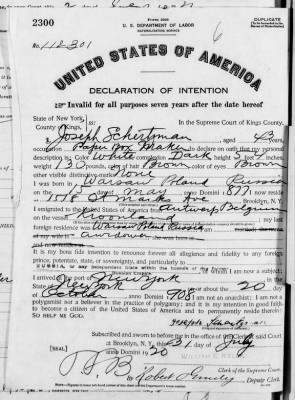 2300
Form 2203
U. S. DEPARTMENT OF LABOR
NATURALIZATION SERVICE
DUPLICATE
No. 112301
UNITED STATES OF AMERICA
DECLARATION OF INTENTION
Invalid for all purposes seven years after the date hereof
State of New York,
County of Kings,
ss:
In the Supreme Court of Kings County.
I, Joseph Schertman, aged 43 years,
occupation Paper Box Maker, do declare on oath that my personal
description is: Color White, complexion Dark, height 5 feet inches,
weight 130 pounds, color of hair Brown, color of eyes Brown
other visible distinctive marks None
I was born in Warsaw Poland Russia
on the day of May, anno Domini 1877; I now reside
at St Marks Ave, Brooklyn, N. Y.
I emigrated to the United States of America from Antwerp Belgium
on the vessel Kroonland; my last
foreign residence was Warsaw Poland Russia
It is my bona fide intention to renounce forever all allegiance and fidelity to any foreign
prince, potentate, state, or sovereignty, and particularly to
I am now a subject;
I arrived at the port of New York, in the
State of New York, on or about the 20 day
of October, anno Domini 1908; I am not an anarchist; I am not a
polygamist nor a believer in the practice of polygamy; and it is my intention in good faith
to become a citizen of the United States of America and to permanently reside therein:
SO HELP ME GOD.
Subscribed and sworn to before me in the office of the Clerk of said Court
at Brooklyn, N. Y., this day of July
anno Domini 1920
[SEAL]
Clerk of the Supreme Court.
By Robert, Deputy Clerk.